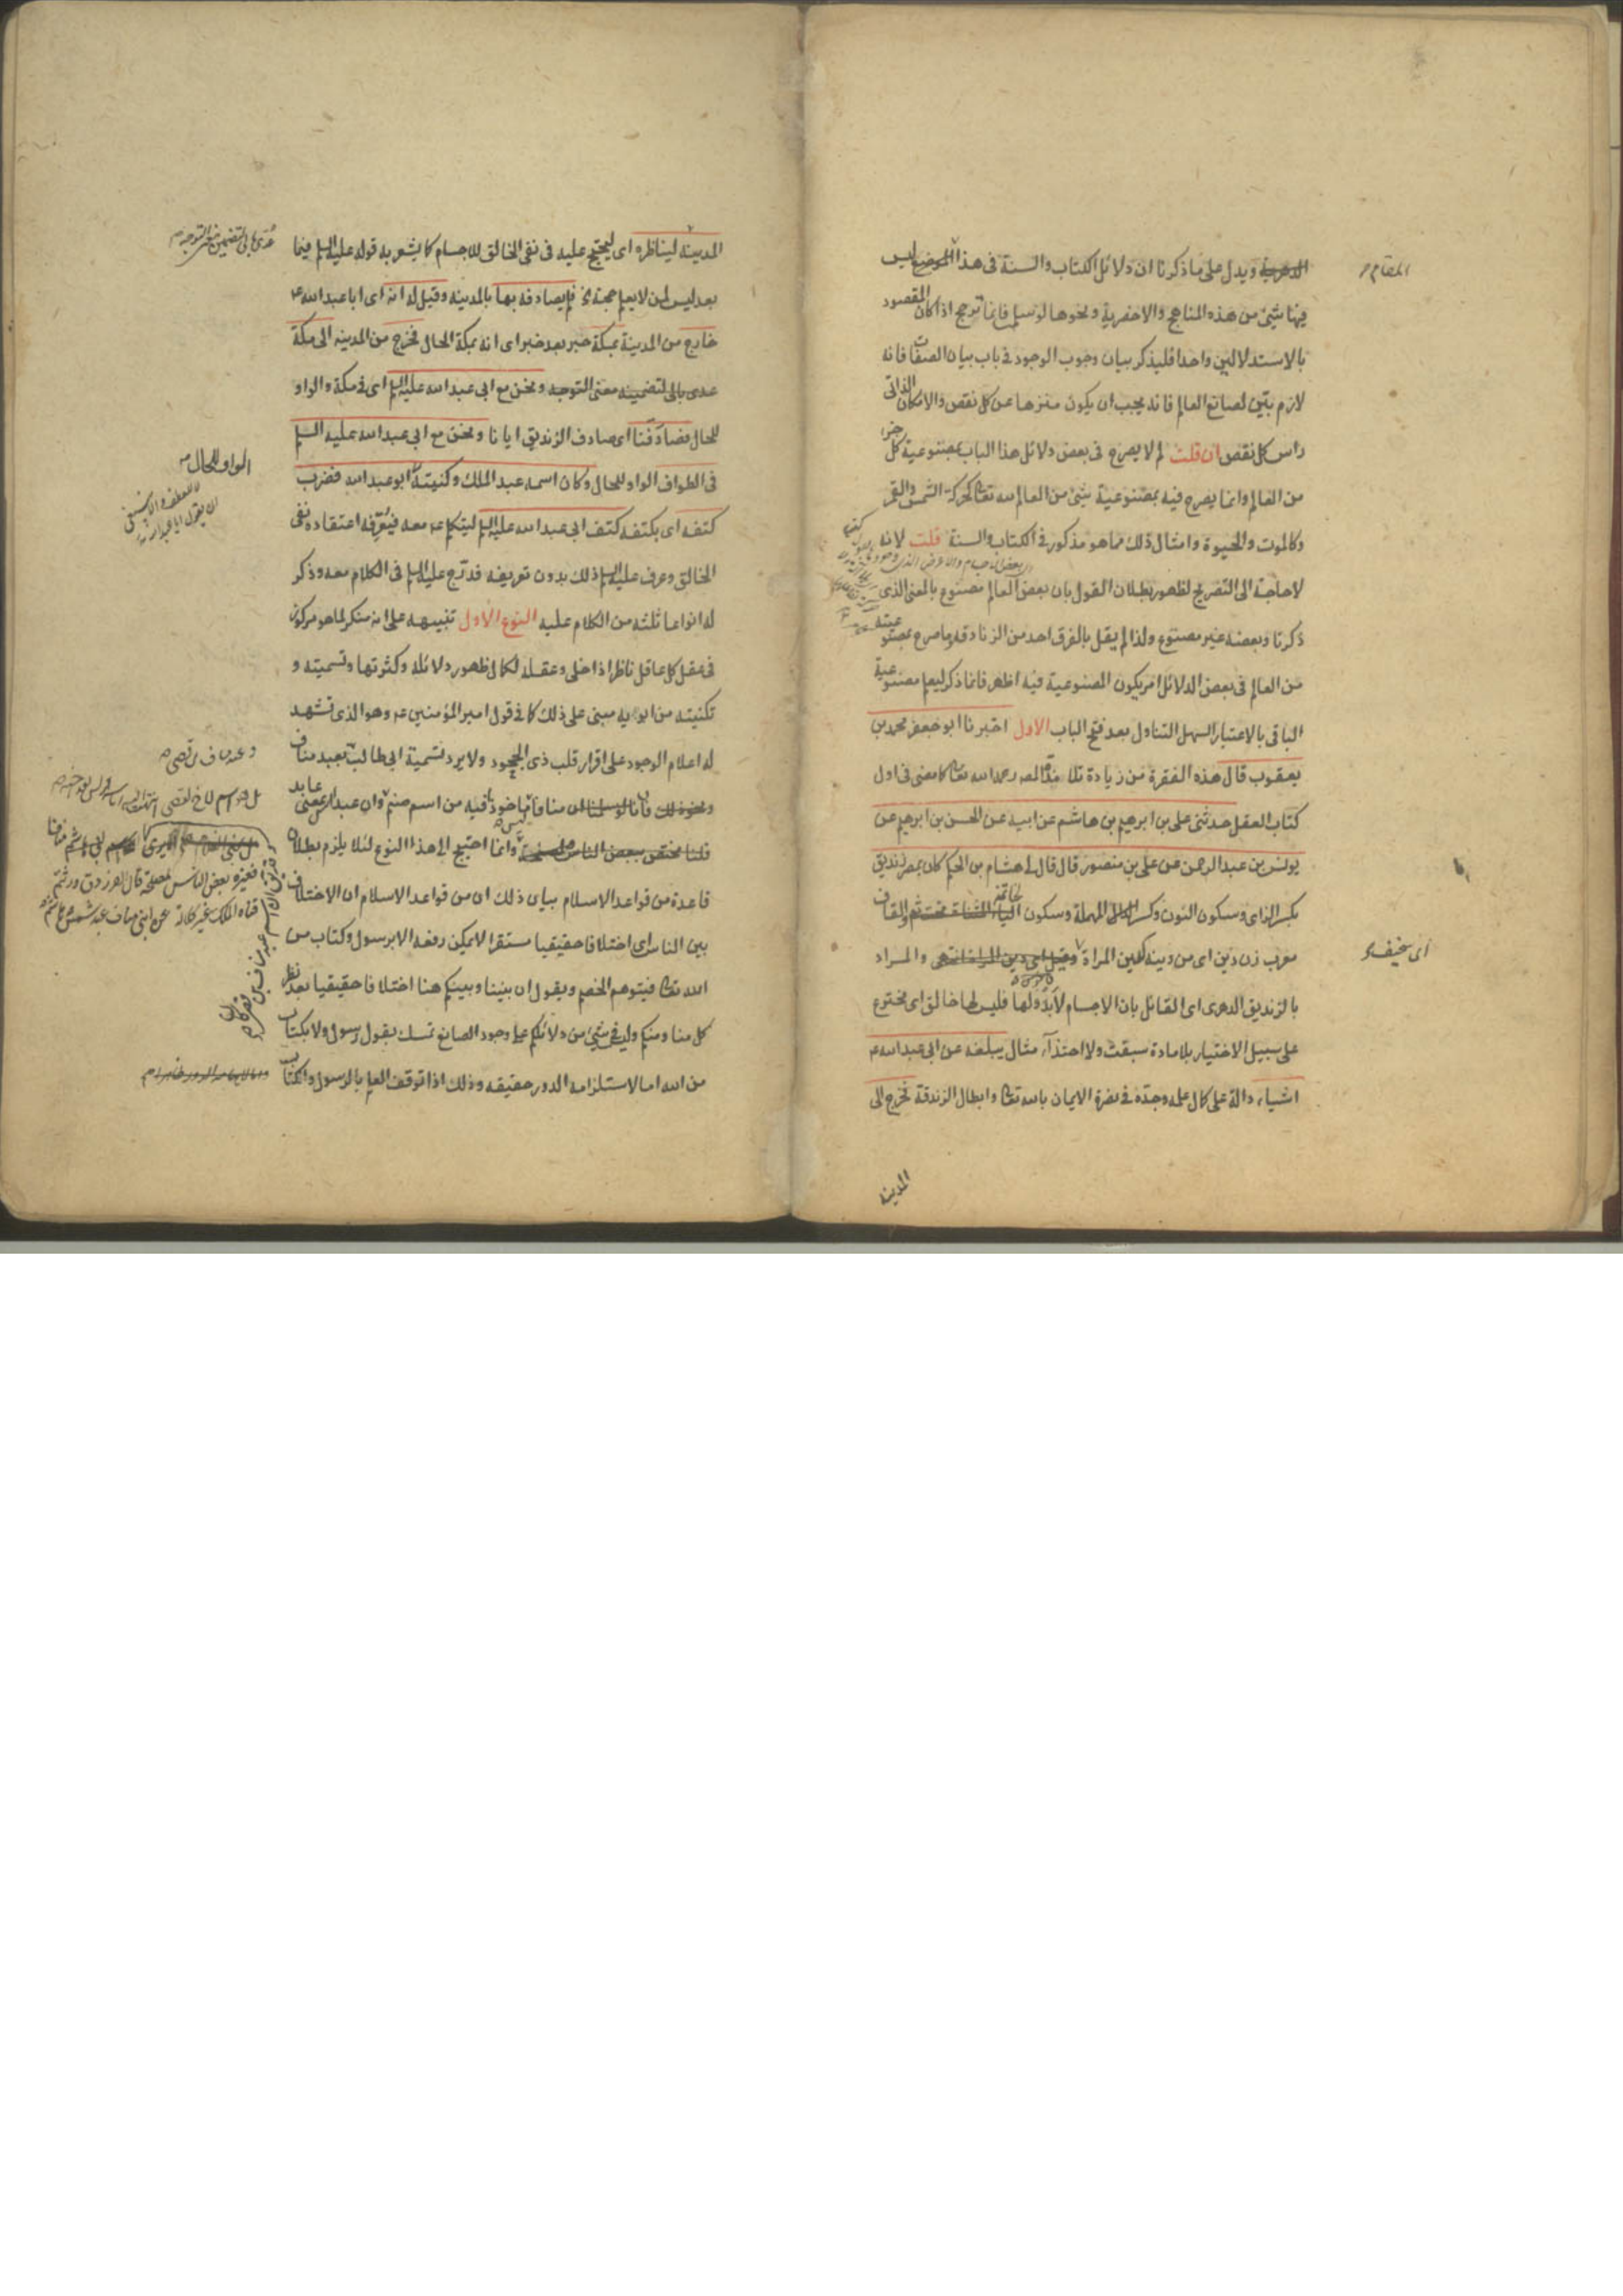 الدهرية ويدل على ما ذكرنا ان دلائل الكتاب والسنة فى هذا الموضع ليس
المقام
فيها شيئ من هذه المناهج والاخصرية ونحوها لو سلم فانما ترجح اذا كان المقصود
بالاستدلالين واحدا فليذكر بيان وجوب الوجود فى باب بيان الصفات فانه
لازم بيّن لصانع العالم فانه يجب ان يكون منزها عن كل نقص والامكان الذاتى
راس كل نقص ان قلت لم لا يصرح فى بعض دلائل هذا الباب بمصنوعية كل جزء
من العالم وانما يصرح فيه بمصنوعية شيئ من العالم لله تعالى كحركة الشمس والقمر
وكالموت والحيوة وامثال ذلك مما هو مذكور فى الكتاب والسنة قلت لانه
لا حاجة الى التصريح لظهور بطلان القول بان بعض العالم مصنوع بالمعنى الذى
ذكرنا وبعضه غير مصنوع ولذا لم يقل بالفرق احد من الزنادقة وما صرح بمصنوعيته
من العالم فى بعض الدلائل امر يكون المصنوعية فيه اظهر فانما ذكر ليعلم مصنوعية
الباقى بالاعتبار السهل التناول بعد فتح الباب الاول اخبرنا ابو جعفر محمد بن
يعقوب قال هذه الفقرة من زيادة تلامذة المصـ رحمه الله تعالى كما مضى فى اول
كتاب العقل حدثنى على بن ابرهيم بن هاشم عن ابيه عن الحسن بن ابرهيم عن
يونس بن عبد الرحمن عن على بن منصور قال قال لى هشام بن الحكم كان بمصر زنديق
بكسر الزاى وسكون النون وكسر الدال المهملة وسكون الياء المثناة تحت ثم والقاف
خاتمة
معرب زن دين اى من دينه كدين المراة وقيل اى دين المراة انتهى والمراد
اى سخيف
بالزنديق الدهرى اى القائل بان الاجسام لا بدو لها فليس لها خالق اى مخترع
على سبيل الاختيار بلا مادة سبقت ولا احتذآء مثال يبلغه عن ابى عبد الله ع
اشياء دالة على كمال علمه وجدّه فى نصرة الايمان بالله تعالى وابطال الزندقة فخرج الى
المدينة
المدينة ليناظره اى ليحتج عليه فى نفى الخالق للاجسام كما يشعر به قوله عليه السلم فيما
بعد ليس لمن لا يعلم حجة الخ فلم يصادفه بها بالمدينة وقيل له انه اى ابا عبد الله ع
خارج من المدينة بمكة خبر بعد خبر اى انه بمكة الحال فخرج من المدينة الى مكة
عدى بالى لتضمينه معنى التوجه ونحن مع ابى عبد الله عليه السلم اى فى مكة والواو
للحال فصادفنا اى صادف الزنديق ايانا ونحن مع ابى عبد الله عليه السلم
فى الطواف الواو للحال وكان اسمه عبد الملك وكنيته ابو عبد الله فضرب
الواو للحال
كتفه اى بكتفه كتف ابى عبد الله عليه السلم ليتكلم عم معه فيعرفه اعتقاده نفى
الخالق وعرف عليه السلم ذلك بدون تعريفه فدرج عليه السلم فى الكلام معه وذكر
له انواعا ثلثة من الكلام عليه النوع الاول تنبيهه على انه منكر لما هو مركوز
فى عقل كل عاقل ناظر اذا خلى وعقله لكمال ظهور دلائله وكثرتها وتسميته و
تكنيته من ابويه مبنى على ذلك كما فى قول امير المؤمنين عم وهو الذى تشهد
له اعلام الوجود على اقرار قلب ذى الجحود ولا يرد تسمية ابى طالب بعبد مناف
ونحو ذلك فانا لو سلمنا ان منافا ماخوذ فيه من اسم صنم وان عبد بمعنى عابد
قلنا مختص ببعض الناس وانما احتيج الى هذا النوع لئلا يلزم بطلان
قاعدة من قواعد الاسلام بيان ذلك ان من قواعد الاسلام ان الاختلاف
بين الناس اى اختلافا حقيقيا مستقرا لا يمكن رفعه الا برسول وكتاب من
الله تعالى فيتوهم الخصم ويقول ان بيننا وبينكم هنا اختلافا حقيقيا بعد نظر
كل منا ومنكم وليس فى شيئ من دلائلكم على وجود الصانع تمسك بقول رسول ولا بكتاب
من الله اما لاستلزامه الدور حقيقة وذلك اذا توقف العلم بالرسول والكتاب